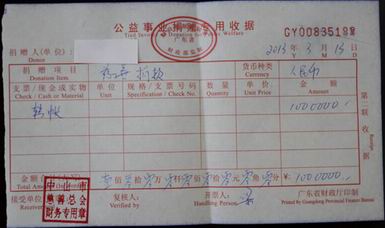 公益事业捐赠专用收据
GY00835188
广东省
财政部监制
捐赠人(单位):
Donor
2013 年 3 月 13 日
Y M D
捐赠项目
Donation Item
捐款
货币种类
Currency
人民币
支票/现金或实物
Check / Cash or Material
单位
Unit
规格/支票号码
Specification / Check No.
数量
Quantity
单价
Unit Price
金额
Amount
转帐
1000000.
金额
Total Amount
壹佰零拾零万零仟零佰零拾零元零角零分
¥: 1000000.
接受单位
复核人:
Verified by
开票人:
Handling Person
广东省财政厅印制
Printed by Guangdong Provincial Finance Bureau
中山市
慈善总会
财务专用章
第二联收据